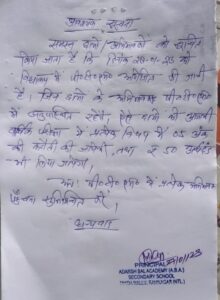 आवश्यक सूचना
समस्त छात्रों / अभिभावकों को सूचित
किया जाता है कि दिनांक
विद्यालय में पी०टी०एम० आयोजित की जानी
है। जिन छात्रों के अभिभावक पी०टी०एम०
में अनुपस्थित रहेंगे, ऐसे छात्रों की आगामी
वार्षिक परीक्षा में प्रत्येक विषय में 05 अंक
की कटौती की जायेगी, तथा
भी लिया जायेगा।
अतः पी०टी०एम० में प्रत्येक अभिभावक
सुनिश्चित करें।
धन्यवाद
PRINCIPAL
ADARSH BAL ACADEMY (A.B.A.)
SECONDARY SCHOOL